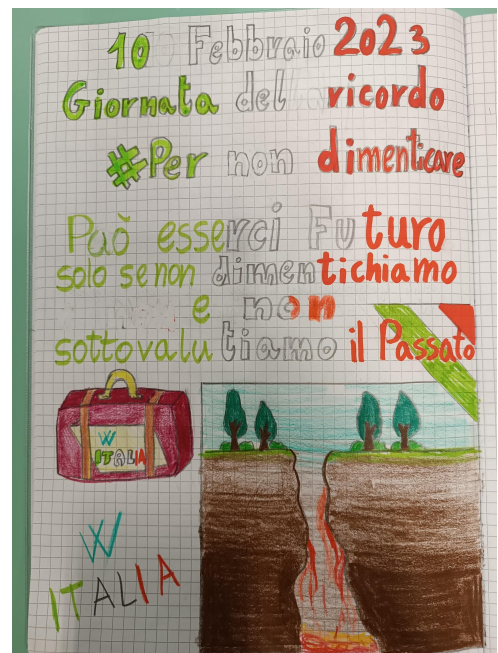 10 Febbraio 2023
Giornata del ricordo
#Per non dimenticare
Può esserci Futuro
solo se non dimentichiamo
e non
sottovalutiamo il Passato
W
ITALIA
W
ITALIA